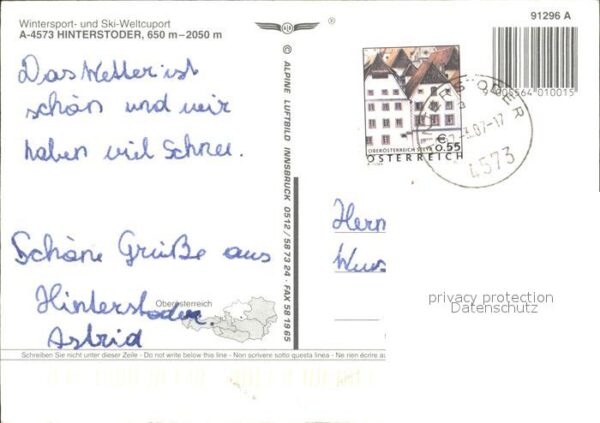 Wintersport- und Ski-Weltcuport
A-4573 HINTERSTODER, 650 m – 2050 m
91296 A
Das Wetter ist
schön und wir
haben viel Schnee.
Schöne Grüße aus
Hinterstoder.
Astrid
Oberösterreich
© ALPINE LUFTBILD INNSBRUCK 0512/58 73 24 · FAX 58 19 65
OBERÖSTERREICH STEYR € 0.55
ÖSTERREICH
4573
Hern
privacy protection
Datenschutz
Schreiben Sie nicht unter dieser Zeile - Do not write below this line - Non scrivere sotto questa linea - Ne rien écrire au